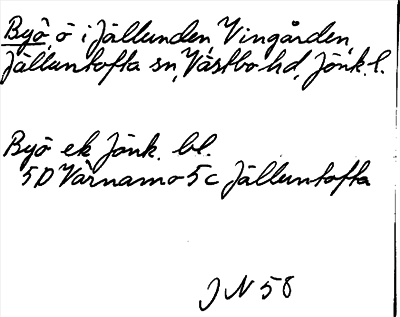 Byö, ö i Jällunden, Vingården,
Jälluntofta sn, Västbo hd, Jönk. l.
Byö ek Jönk. bl.
5D Värnamo 5c Jälluntofta
J N 58